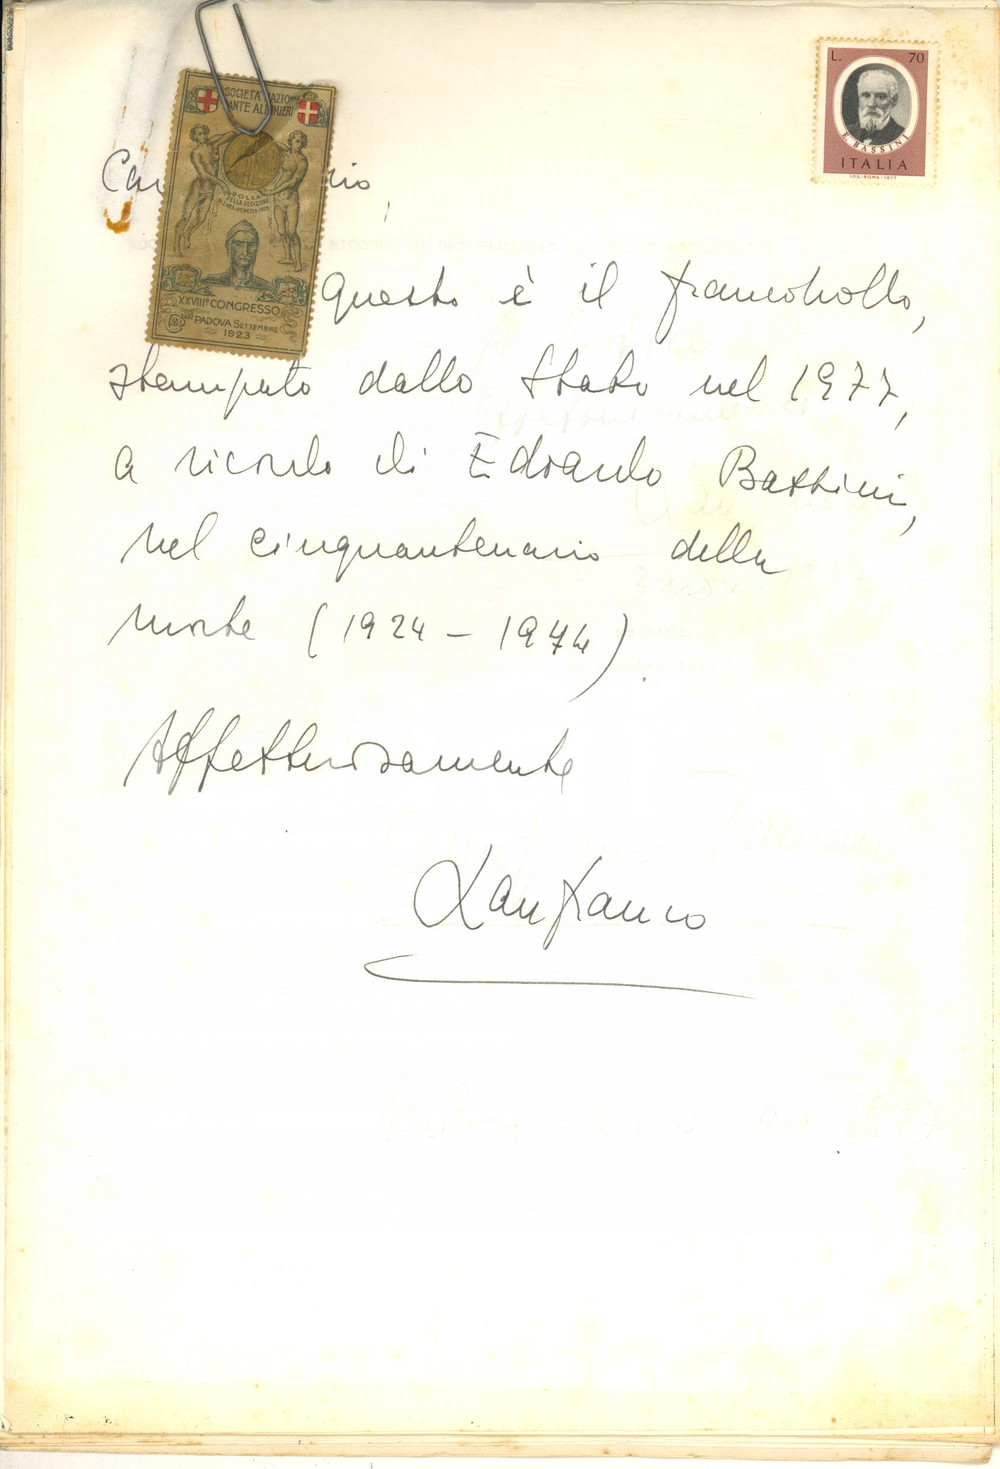 SOCIETÀ NAZION
DANTE ALIGHIERI
BOLLA
DELLA DEDIZIONE
XXVIII° CONGRESSO
PADOVA SETTEMBRE
1923
L. 70
E. BASSINI
ITALIA
I.P.Z.S.-ROMA-1977
Questo è il francobollo,
stampato dallo Stato nel 1977,
a ricordo di Edoardo Bassini,
nel cinquantenario della
morte (1924 - 1974).
Affettuosamente
Lanfranco